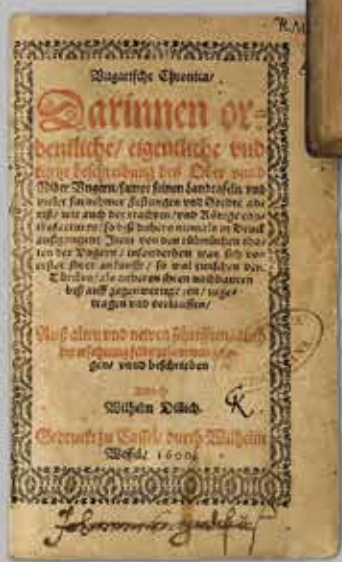 Ungarische Chronica/
Darinnen or-
dentliche/ eigentliche vnd
kurtze beschreibung des Ober vnnd
Nider Vngern/ sampt seinen landtafeln vnd
vieler fürnehmer Festungen vnd Stedte ab
riß/ wie auch der trachten/ vnd Könige con
so biß dahero niemals in Druck
außgangen: Item von den rühmlichen tha
ten der Vngern/ insonderheit was sich von
erster ihrer ankunfft/ so wol zwischen den
Türcken/ als anderen ihren nachbauren
biß auff gegenwertige zeit/ zuge-
tragen vnd verlauffen/
Auß alten vnd newen schrifften/ auch
der erfahrung selbst zusammen gezo-
gen/ vnnd beschrieben
Durch
Wilhelm Dilich.
Gedruckt zu Cassel/ durch Wilhelm
Wessel/ 1600.